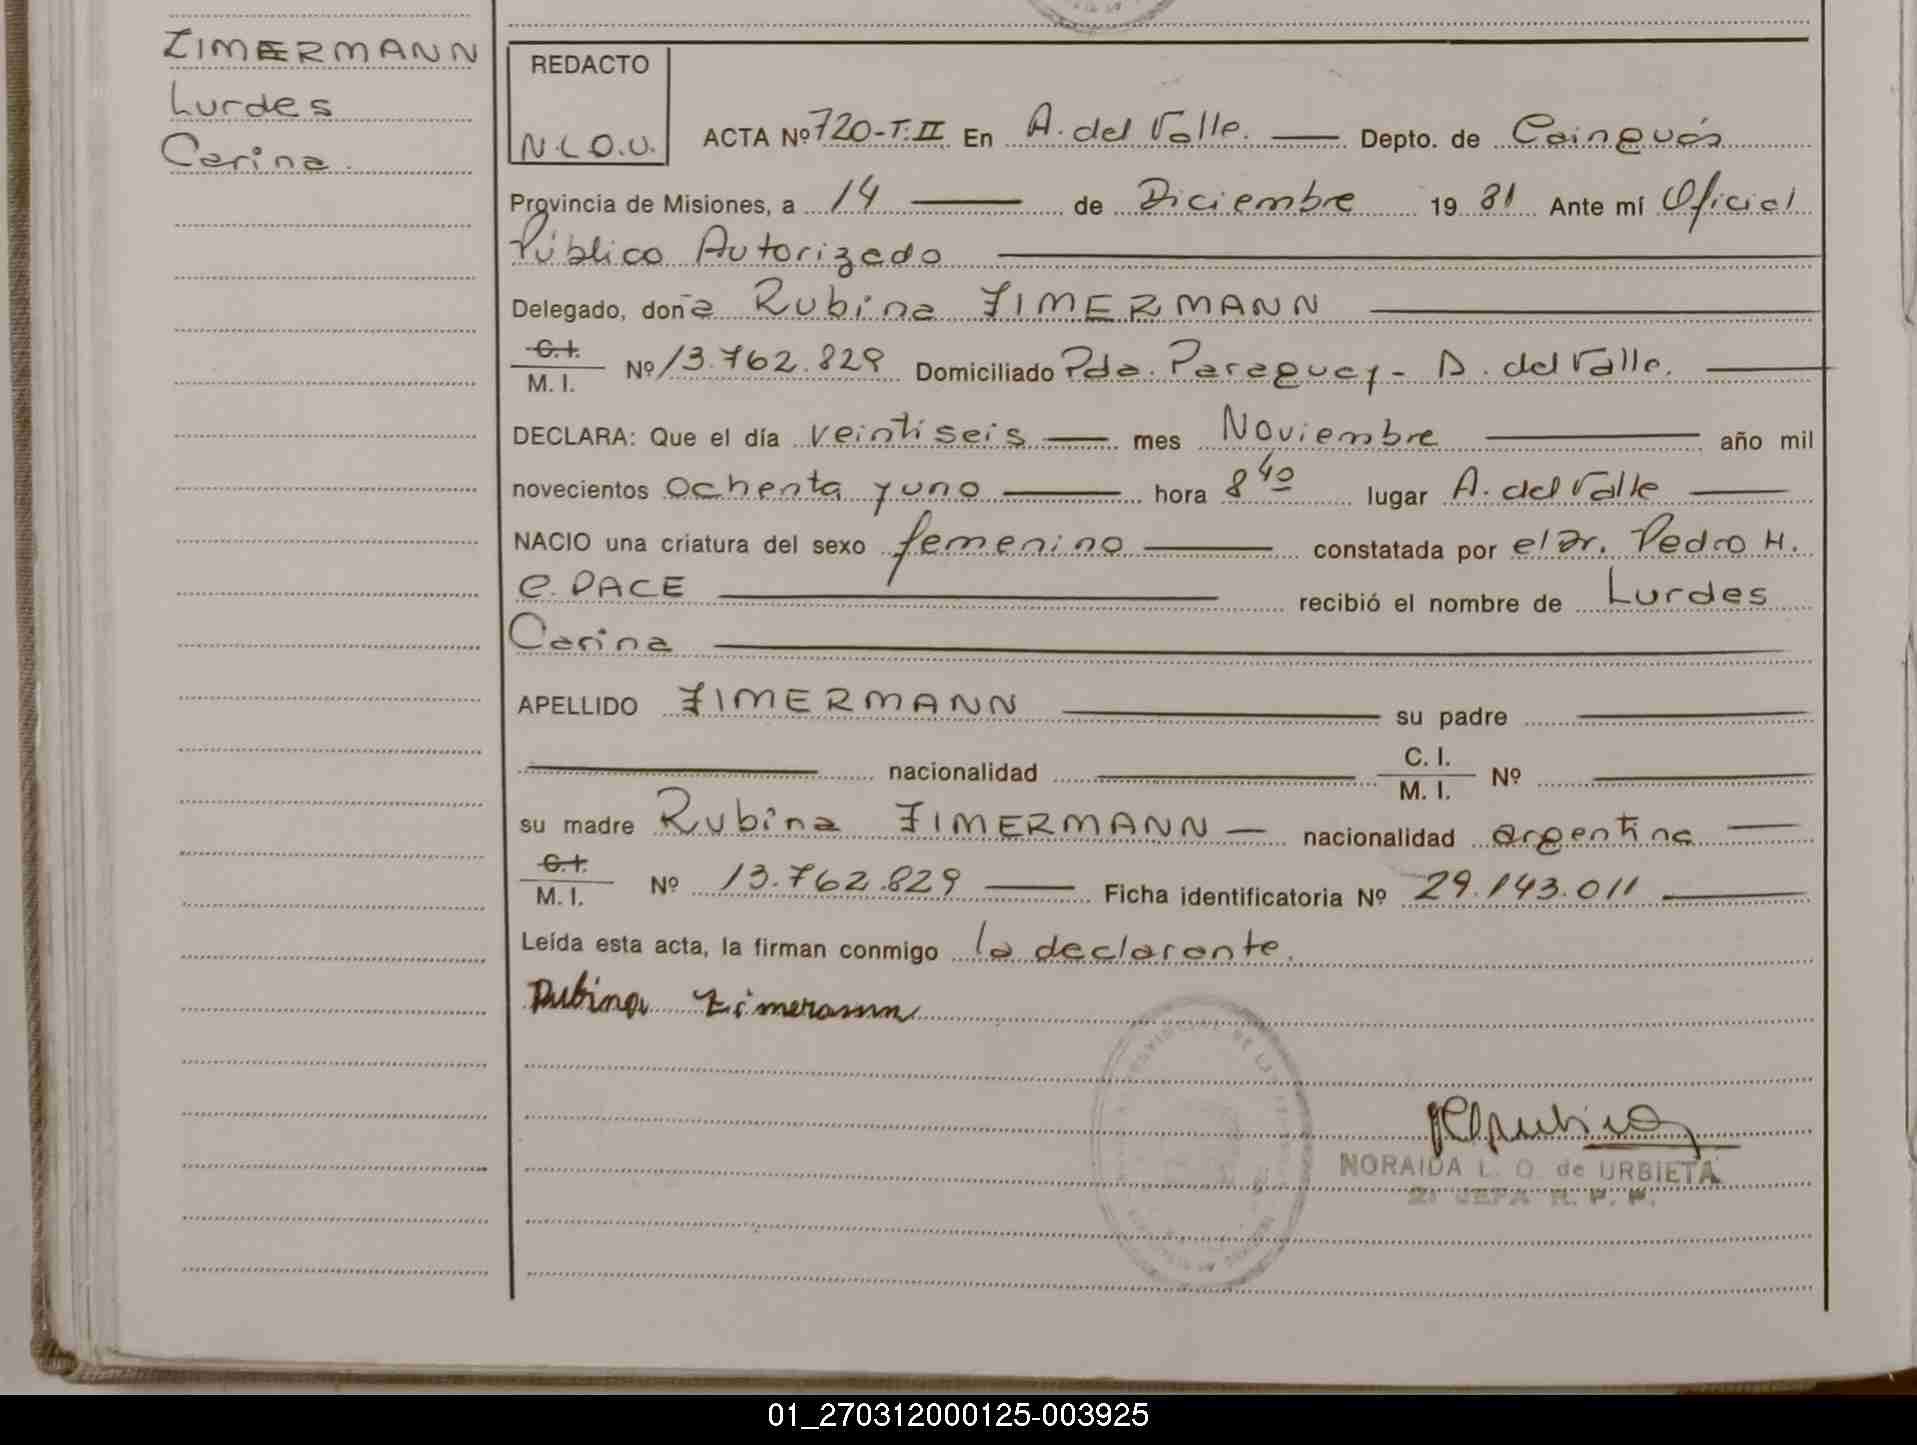 ZIMERMANN
Lurdes
Carina.
REDACTO
N.L.O.U.
ACTA Nº 720-T:II En A. del Valle. Depto. de Cainguás
Provincia de Misiones, a 14 de Diciembre 19 81 Ante mí Oficial
Público Autorizado
Delegado, doña Rubina ZIMERMANN
C.I.
M. I. Nº 13.762.829 Domiciliado Pda. Paraguay - A. del Valle.
DECLARA: Que el día veintiseis mes Noviembre año mil
novecientos ochenta y uno hora 8 40 lugar A. del Valle
NACIO una criatura del sexo femenino constatada por el Dr. Pedro H.
C. PACE recibió el nombre de Lurdes
Carina
APELLIDO ZIMERMANN su padre
nacionalidad C. I.
M. I. Nº
su madre Rubina ZIMERMANN nacionalidad argentina
C.I.
M. I. Nº 13.762.829 Ficha identificatoria Nº 29.143.011
Leída esta acta, la firman conmigo la declarante.
Rubina Zimeramnn
NORAIDA L. O. de URBIETA
2ª JEFA R. P. P.
01_270312000125-003925